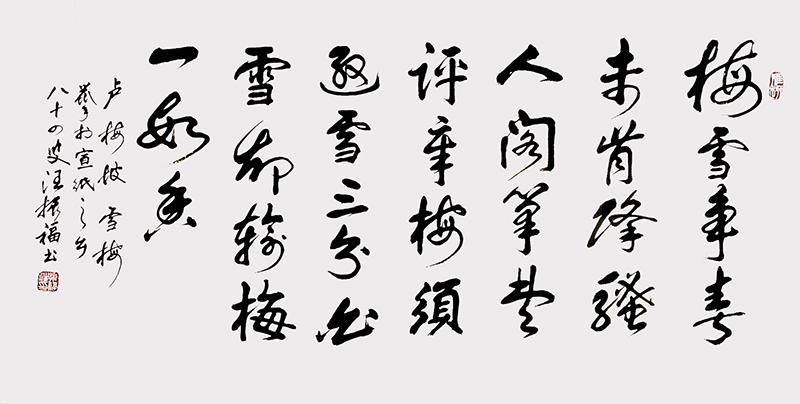 梅雪争春
未肯降騷
人阁筆费
评章梅須
逊雪三分白
雪却輸梅
一段香
卢梅坡 雪梅
癸卯於宣纸之乡
八十四叟汪振福书